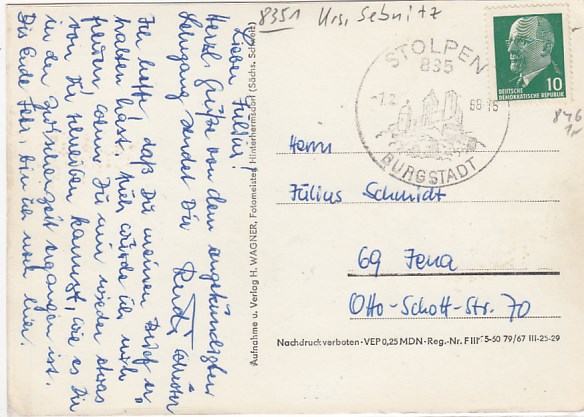 8351 Krs. Sebnitz
Lieber Julius!
Herzl. Grüße von dem angekündigten
Lehrgang sendet Dir Rudi
Ich hoffe, daß Du meinen Brief er-
halten hast. Auch würde ich mich
freuen, wenn Du mir wieder etwas
von Dir schreiben kannst, wie es Dir
in der Zwischenzeit ergangen ist.
Bis Ende Febr. bin ich noch hier.
Aufnahme u. Verlag H. WAGNER, Fotomeister, Hinterhermsdorf (Sächs. Schweiz)
STOLPEN
835
-7.2
68
BURGSTADT
10
DEUTSCHE
DEMOKRATISCHE REPUBLIK
846
Herrn
Julius Schmidt
69 Jena
Otto-Schott-Str. 70
Nachdruck verboten · VEP 0,25 MDN · Reg.-Nr. F 5-50 79/67 III-25-29